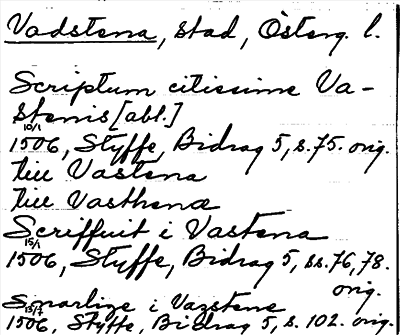 Vadstena, stad, Österg. l.
Scriptum citissime Va-
stenis [abl.]
10/1
1506, Styffe, Bidrag 5, s. 75. orig.
till Vastena
till Vasthena
Scriffuit i Vastena
15/1
1506, Styffe, Bidrag 5, ss. 76, 78.
orig.
Snarlige i Vazstene
1506, Styffe, Bidrag 5, s. 102. orig.